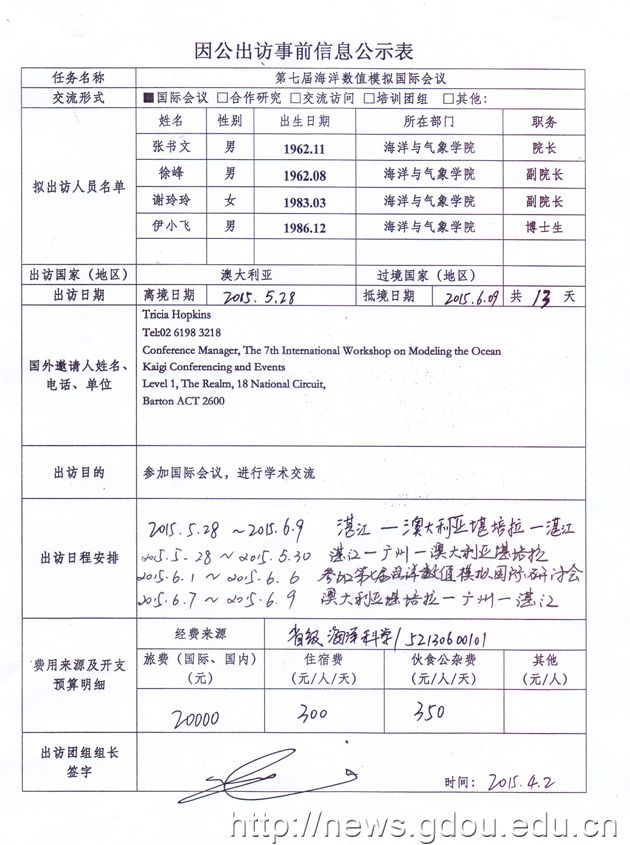 因公出访事前信息公示表
任务名称 第七届海洋数值模拟国际会议
交流形式 ■国际会议 □合作研究 □交流访问 □培训团组 □其他:
拟出访人员名单 姓名 性别 出生日期 所在部门 职务
张书文 男 1962.11 海洋与气象学院 院长
徐峰 男 1962.08 海洋与气象学院 副院长
谢玲玲 女 1983.03 海洋与气象学院 副院长
伊小飞 男 1986.12 海洋与气象学院 博士生
出访国家（地区） 澳大利亚 过境国家（地区）
出访日期 离境日期 2015.5.28 抵境日期 2015.6.09 共 13 天
国外邀请人姓名、电话、单位
Tricia Hopkins
Tel:02 6198 3218
Conference Manager, The 7th International Workshop on Modeling the Ocean
Kaigi Conferencing and Events
Level 1, The Realm, 18 National Circuit,
Barton ACT 2600
出访目的 参加国际会议，进行学术交流
出访日程安排
2015.5.28 ~2015.6.9 湛江—澳大利亚堪培拉—湛江
2015.5.28 ~ 2015.5.30 湛江—广州—澳大利亚堪培拉
2015.6.1 ~ 2015.6.6 参加第七届海洋数值模拟国际研讨会
2015.6.7 ~ 2015.6.9 澳大利亚堪培拉—广州—湛江
费用来源及开支预算明细
经费来源 省级海洋科学/52130600101
旅费（国际、国内）（元） 住宿费（元/人/天） 伙食公杂费（元/人/天） 其他（元/人）
20000 300 350
出访团组组长
签字
时间: 2015.4.2
http://news.gdou.edu.cn